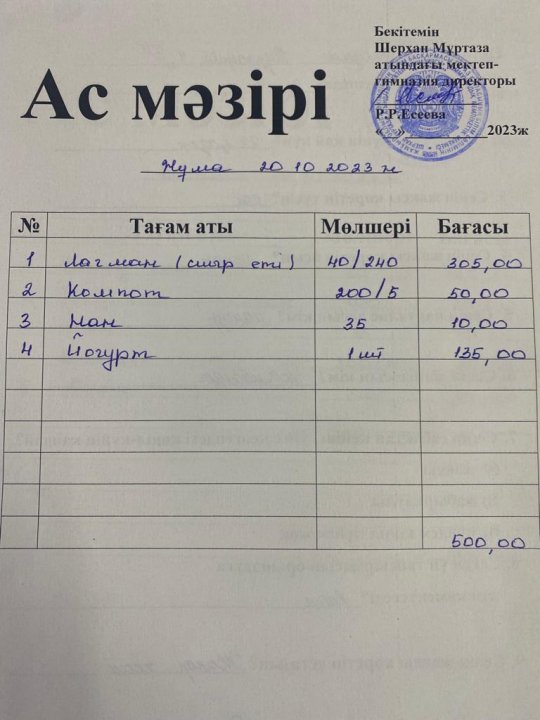 Бекітемін
Шерхан Мұртаза
атындағы мектеп-
гимназия директоры
Р.Р.Есеева
« » 2023ж
Ас мәзірі
Жұма 20 10 2023 ж
№ Тағам аты Мөлшері Бағасы
1 Лагман (сиыр еті) 40/240 305,00
2 Компот 200/5 50,00
3 Нан 35 10,00
4 Йогурт 1 шт 135,00
500,00